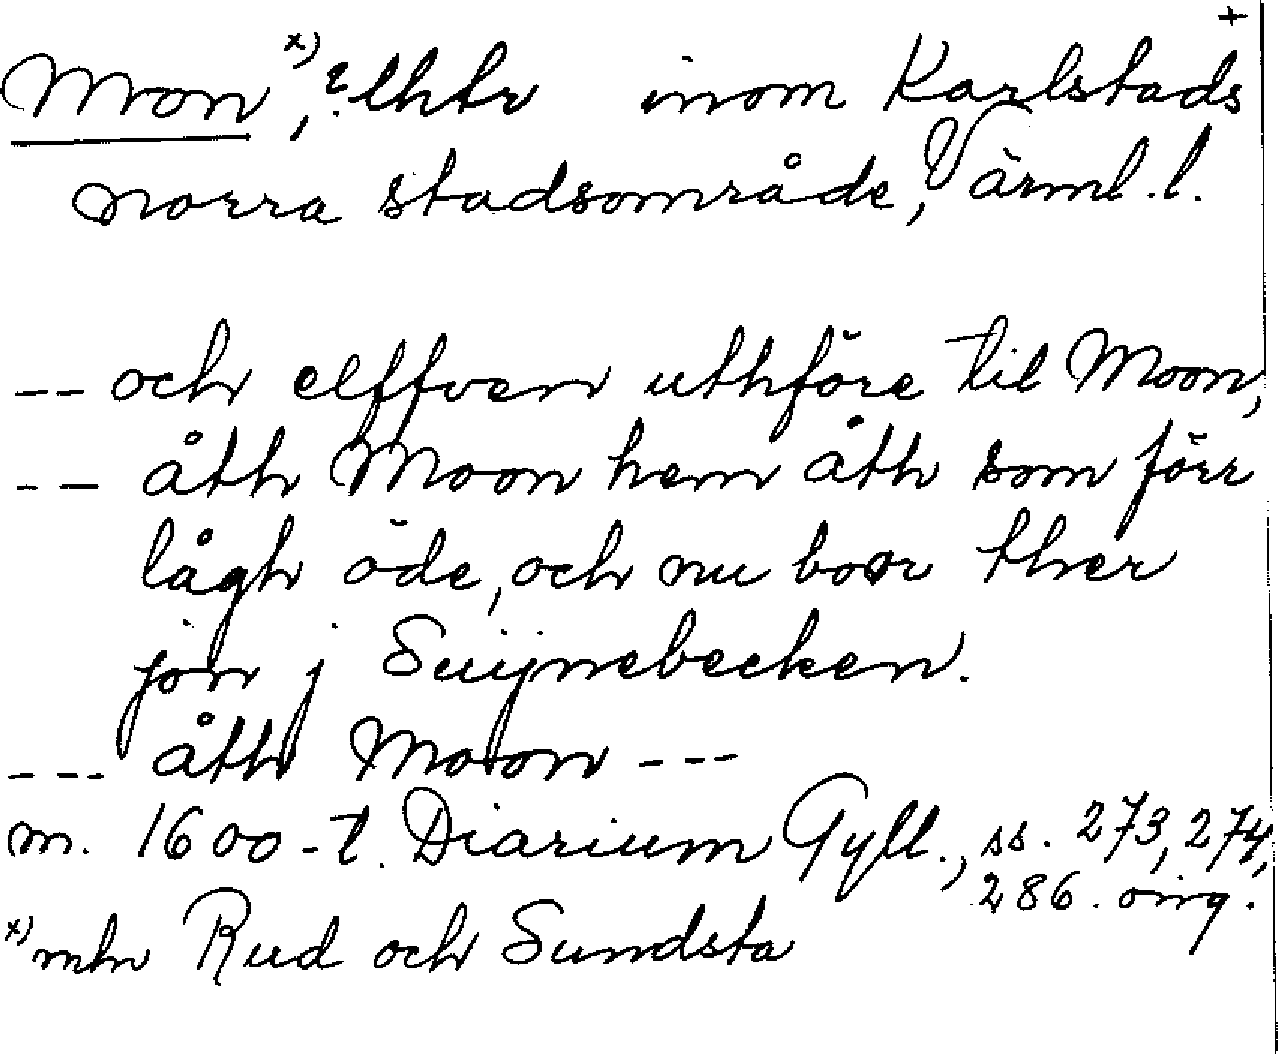 +
Mon x), ?lhtr inom Karlstads
norra stadsområde, Värml. l.
-- och elffven uthföre til Moon,
-- åth Moon hem åth som förr
lågh öde, och nu boor ther
jön j Suijnebecken.
--- åth Moon ---
m. 1600-t. Diarium Gyll., ss. 273, 274,
286. orig.
x) mln Rud och Sundsta